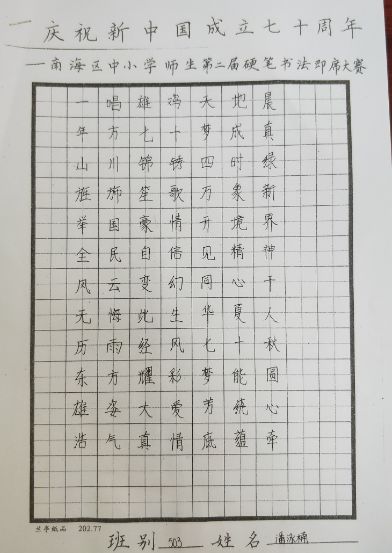 庆祝新中国成立七十周年
—南海区中小学师生第二届硬笔书法即席大赛
一唱雄鸡天地晨
年方七十梦成真
山川锦锈四时绿
旌旆笙歌万象新
举国豪情开境界
全民自信见精神
风云变幻同心干
无悔此生华夏人
历雨经风七十秋
东方耀彩梦能圆
雄姿大爱芳统心
浩气真情底蕴牵
兰亭纸品 202.77
班别 503 姓名 潘泳楠